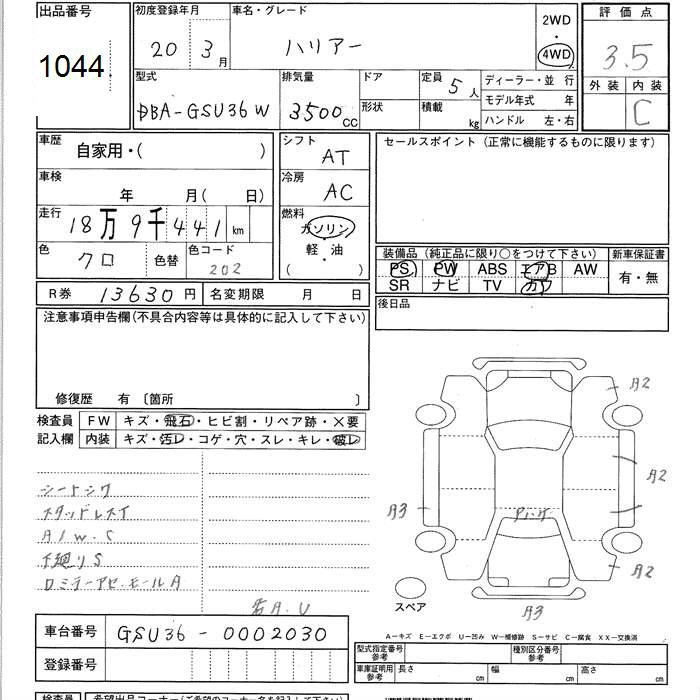 出品番号
1044
初度登録年月
20 3月
車名・グレード
ハリアー
2WD
・
4WD
評価点
3.5
外装 内装
C
型式
DBA-GSU36W
排気量
3500cc
ドア
形状
定員 5人
積載 kg
ディーラー・並 行
モデル年式 年
ハンドル 左・右
車歴
自家用・( )
車検
年 月( 日)
走行
18万9千441km
色
クロ
色替
色コード
202
シフト
AT
冷房
AC
燃料
ガソリン
軽・油
( )
セールスポイント(正常に機能するものに限ります)
装備品(純正品に限り○をつけて下さい)
PS PW ABS エアB AW
SR ナビ TV カワ
新車保証書
有・無
R券 13630円
名変期限 月 日
後日品
注意事項申告欄(不具合内容等は具体的に記入して下さい)
修復歴 有 〔箇所 〕
検査員
記入欄
FW キズ・飛石・ヒビ割・リペア跡・×要
内装 キズ・汚レ・コゲ・穴・スレ・キレ・破レ
シートシワ
スタッドレスT
A/W.C
下廻りS
若A.U
A2
A2
A2
A3
A3
スペア
A—キズ E—エクボ U—凹み W—補修跡 S—サビ C—腐食 XX—交換済
車台番号
GSU36-0002030
登録番号
型式指定番号
参考
種別区分番号
参考
車庫証明用
参考
長さ cm
幅 cm
高さ cm
検査員
希望出品コーナー(ご希望のコーナー名を記入して下さい)